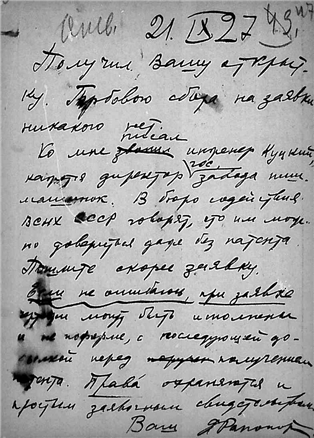 Отв. 21 IX 27
Получил Вашу открыт-
ку. Гербового сбора на заявки
никакого нет.
Ко мне писал инженер Куцкий,
кажется директор гос завода пиш.
машинок. В бюро содействия
ВСНХ СССР говорят, что им мож-
но довериться даже без патента.
Пошлите скорее заявку.
Если не ошибаюсь, при заявке
могут быть и
и не по форме, с последующей до-
перед получением
патента. Права охраняются и
простым заявочным свидетельством.
Ваш